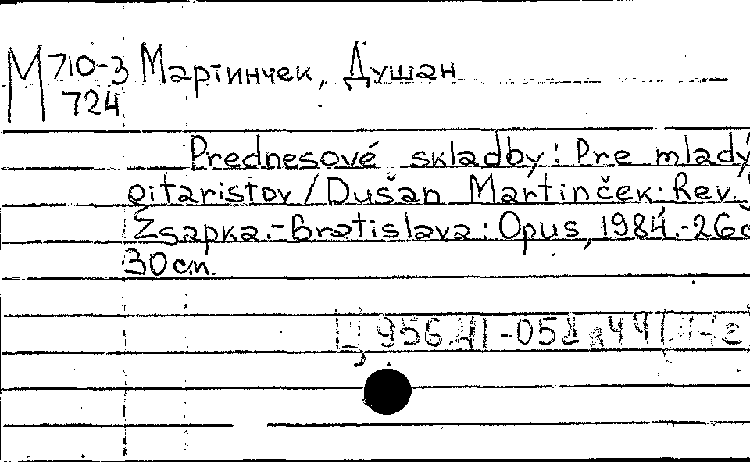 М 710-3 Мартинчек, Душан
724
Prednesové skladby: Pre mladý
gitaristov / Dušan Martinček: Rev. J
Zsapka.- Bratislava: Opus, 1984.-26с
30 cm.
Ц 956.41-05